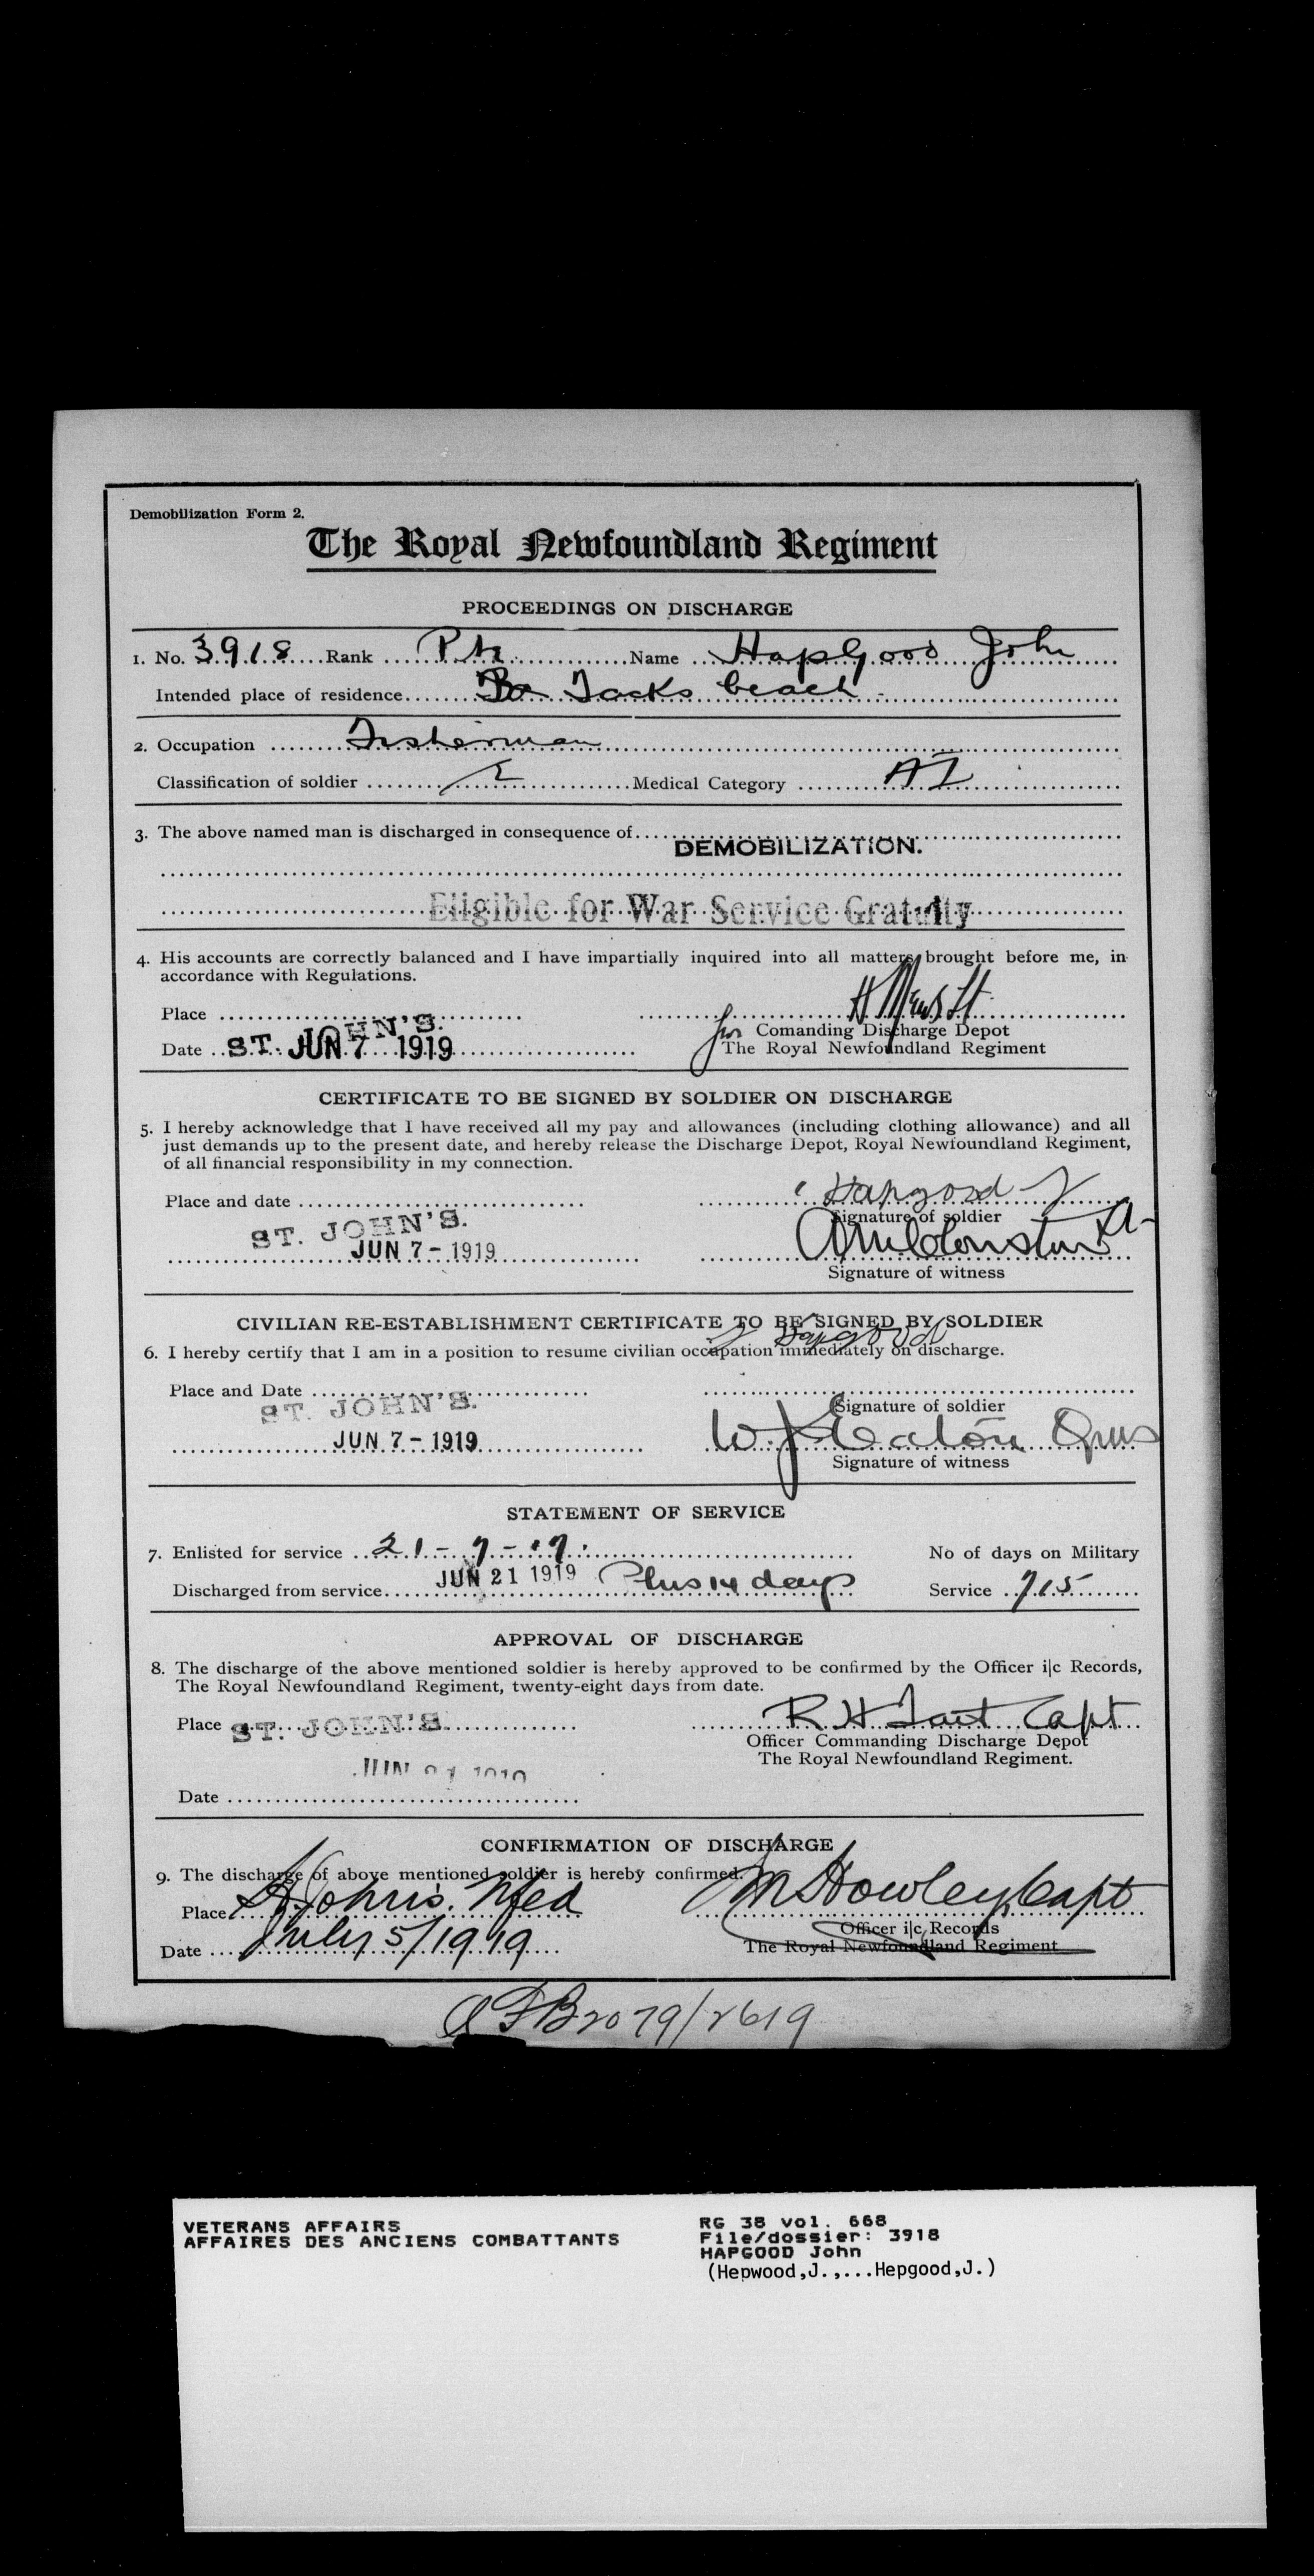 Demobilization Form 2.
The Royal Newfoundland Regiment
PROCEEDINGS ON DISCHARGE
1. No. 3918 Rank Pte Name Hapgood John
Intended place of residence Jacks beach
2. Occupation Fisherman
Classification of soldier E Medical Category A I
3. The above named man is discharged in consequence of
DEMOBILIZATION.
Eligible for War Service Gratuity
4. His accounts are correctly balanced and I have impartially inquired into all matters brought before me, in
accordance with Regulations.
Place ST. JOHN'S.
Date JUN 7 1919
H Mews Lt
for Comanding Discharge Depot
The Royal Newfoundland Regiment
CERTIFICATE TO BE SIGNED BY SOLDIER ON DISCHARGE
5. I hereby acknowledge that I have received all my pay and allowances (including clothing allowance) and all
just demands up to the present date, and hereby release the Discharge Depot, Royal Newfoundland Regiment,
of all financial responsibility in my connection.
Place and date
Hapgood J
Signature of soldier
ST. JOHN'S.
JUN 7 - 1919
Signature of witness
CIVILIAN RE-ESTABLISHMENT CERTIFICATE TO BE SIGNED BY SOLDIER
J Hapgood
6. I hereby certify that I am in a position to resume civilian occupation immediately on discharge.
Place and Date
ST. JOHN'S.
Signature of soldier
JUN 7 - 1919
W J Eaton Qms
Signature of witness
STATEMENT OF SERVICE
7. Enlisted for service 21 - 7 - 17. No of days on Military
Discharged from service JUN 21 1919 Plus 14 days Service 715
APPROVAL OF DISCHARGE
8. The discharge of the above mentioned soldier is hereby approved to be confirmed by the Officer i|c Records,
The Royal Newfoundland Regiment, twenty-eight days from date.
Place ST. JOHN'S
R H Tait Capt
Officer Commanding Discharge Depot
The Royal Newfoundland Regiment.
JUN 21 1919
Date
CONFIRMATION OF DISCHARGE
9. The discharge of above mentioned soldier is hereby confirmed.
Place St Johns. Nfld
M Howley Capt
Officer i|c Records
Date July 5/1919
The Royal Newfoundland Regiment
AFB 2079/2619
VETERANS AFFAIRS
AFFAIRES DES ANCIENS COMBATTANTS
RG 38 vol. 668
File/dossier: 3918
HAPGOOD John
(Hepwood,J.,...Hepgood,J.)